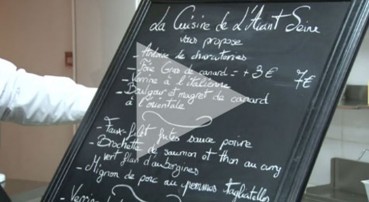 La Cuisine de L'Avant Seine
vous propose
- Ardoise de charcuteries
- Foie Gras de canard = + 3 €
7€
- Verrine à l'italienne
- Boulgour et magret de canard
à l'orientale
- Faux-filet frites sauce poivre
- Brochette de saumon et thon au curry
vert flan d'aubergines
- Mignon de porc au tagliatelles